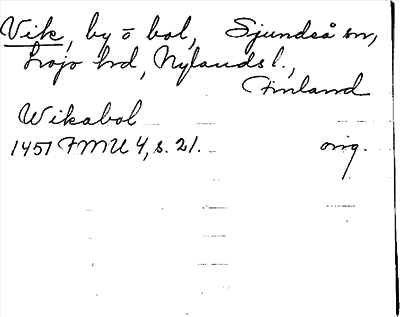 Vik, by o bol, Sjundeå sn,
Lojo hd, Nylands l.,
Finland
Wikabol
1451 FMU 4, s. 21. orig.